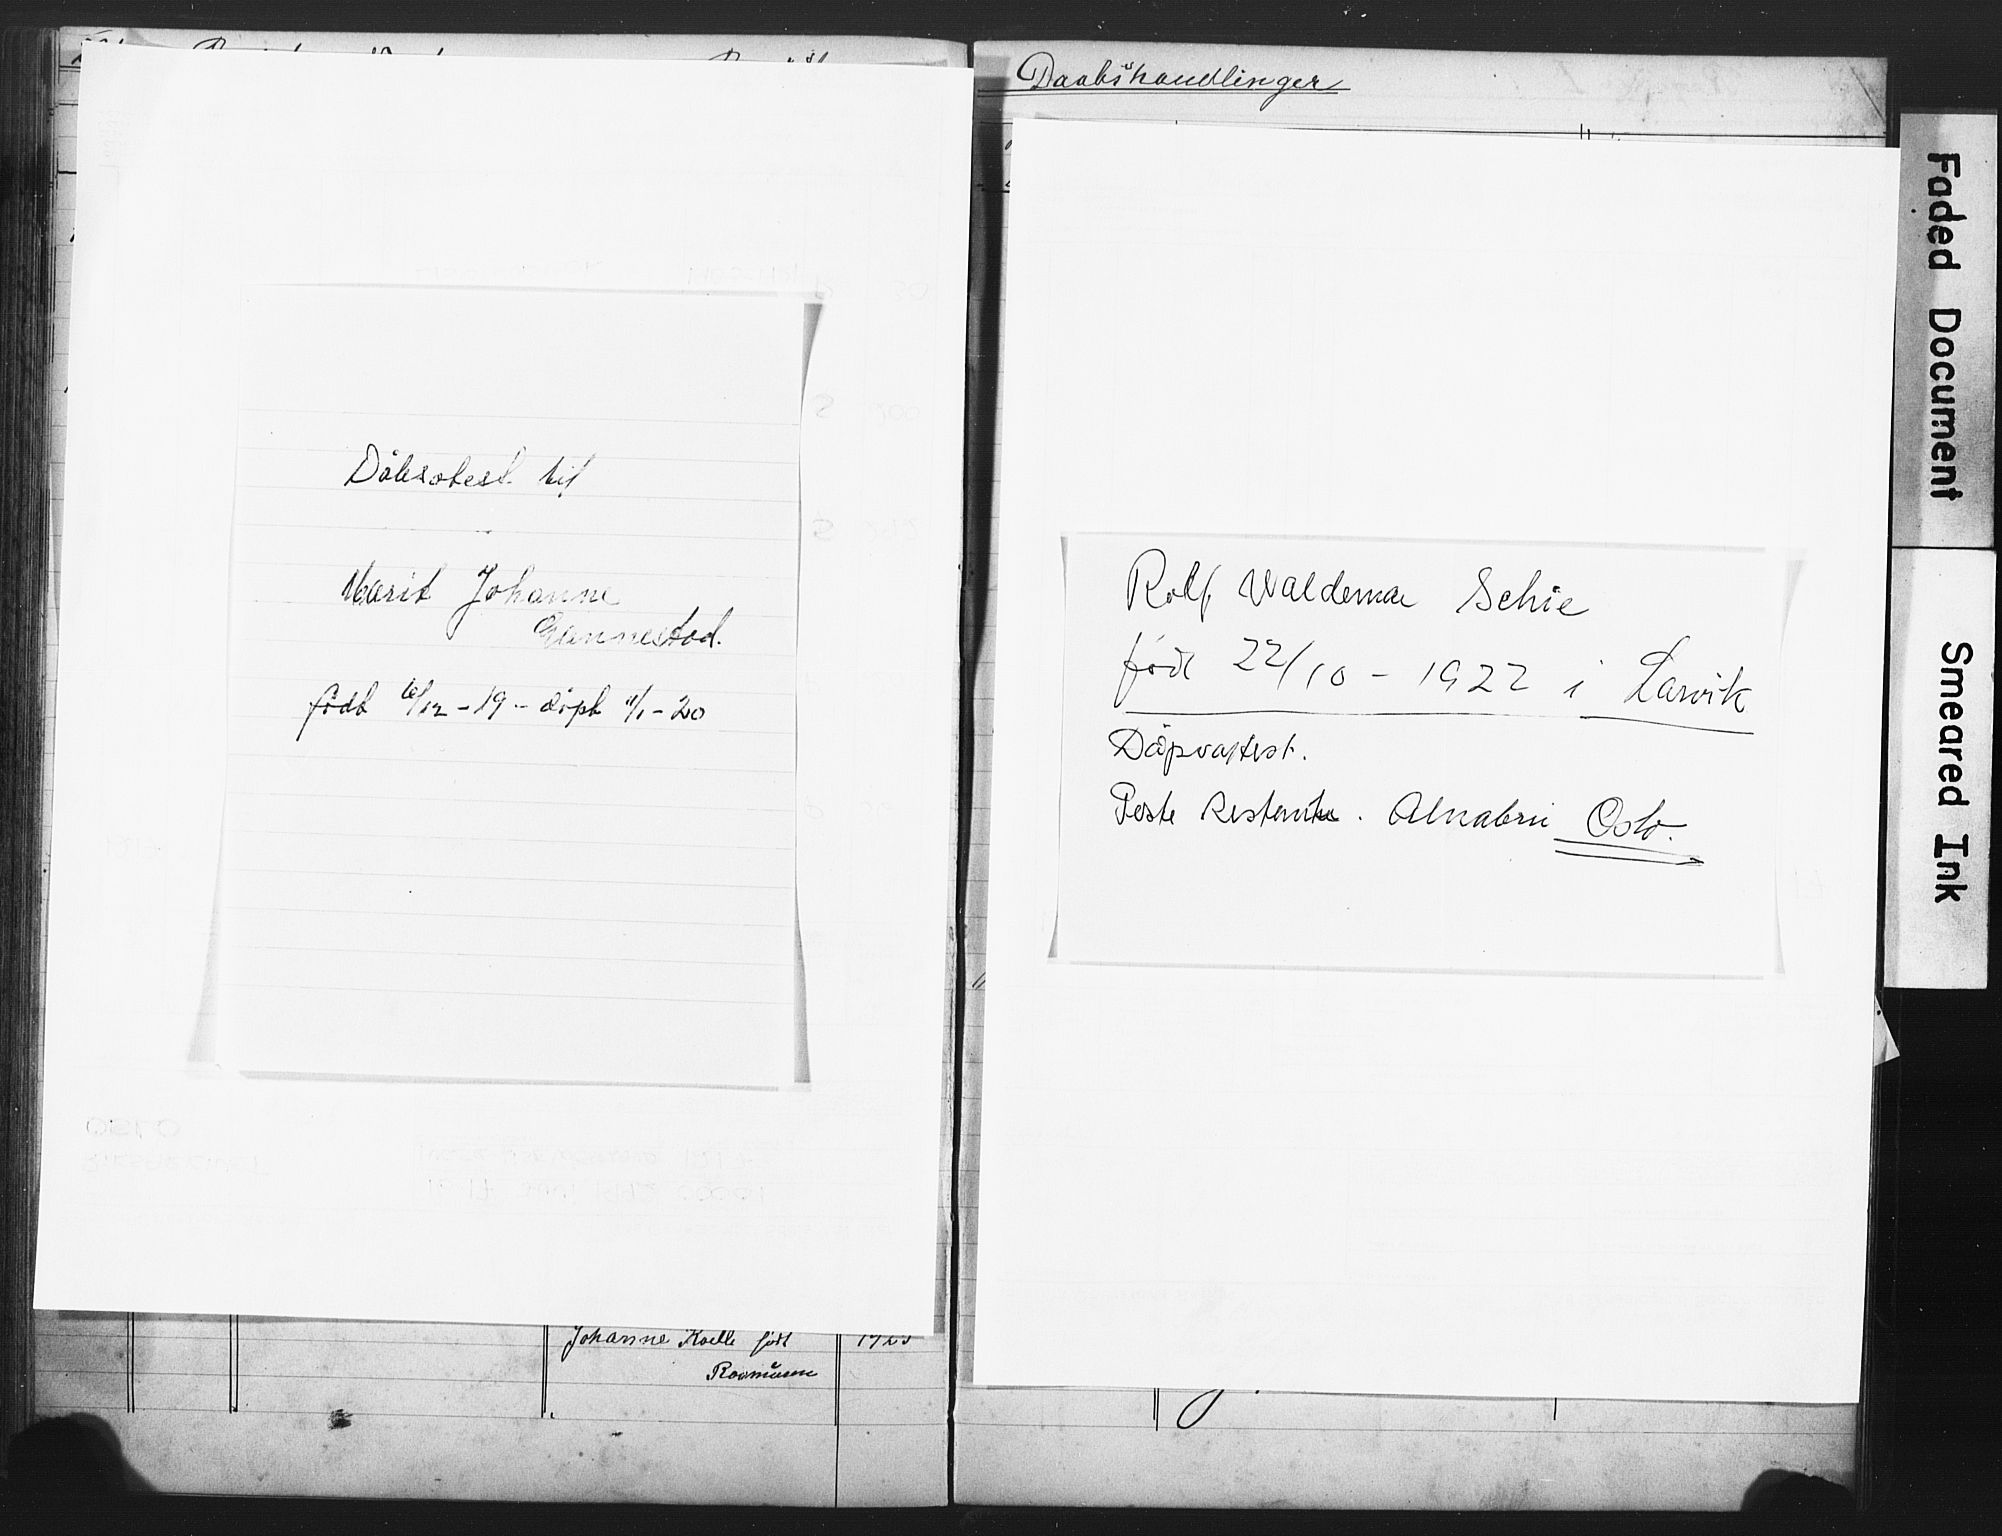 Dåbsatest til
Marit Johanne
Gannestad.
født 6/12 - 19 - døpt 11/1 - 20
Johanne Kolle født
Rasmussen
Daabshandlinger
Rolf Valdemar Schie
født 22/10 - 1922 i Larvik
Dåpsattest.
Poste Restante. Alnabru Oslo.
Faded Document
Smeared Ink